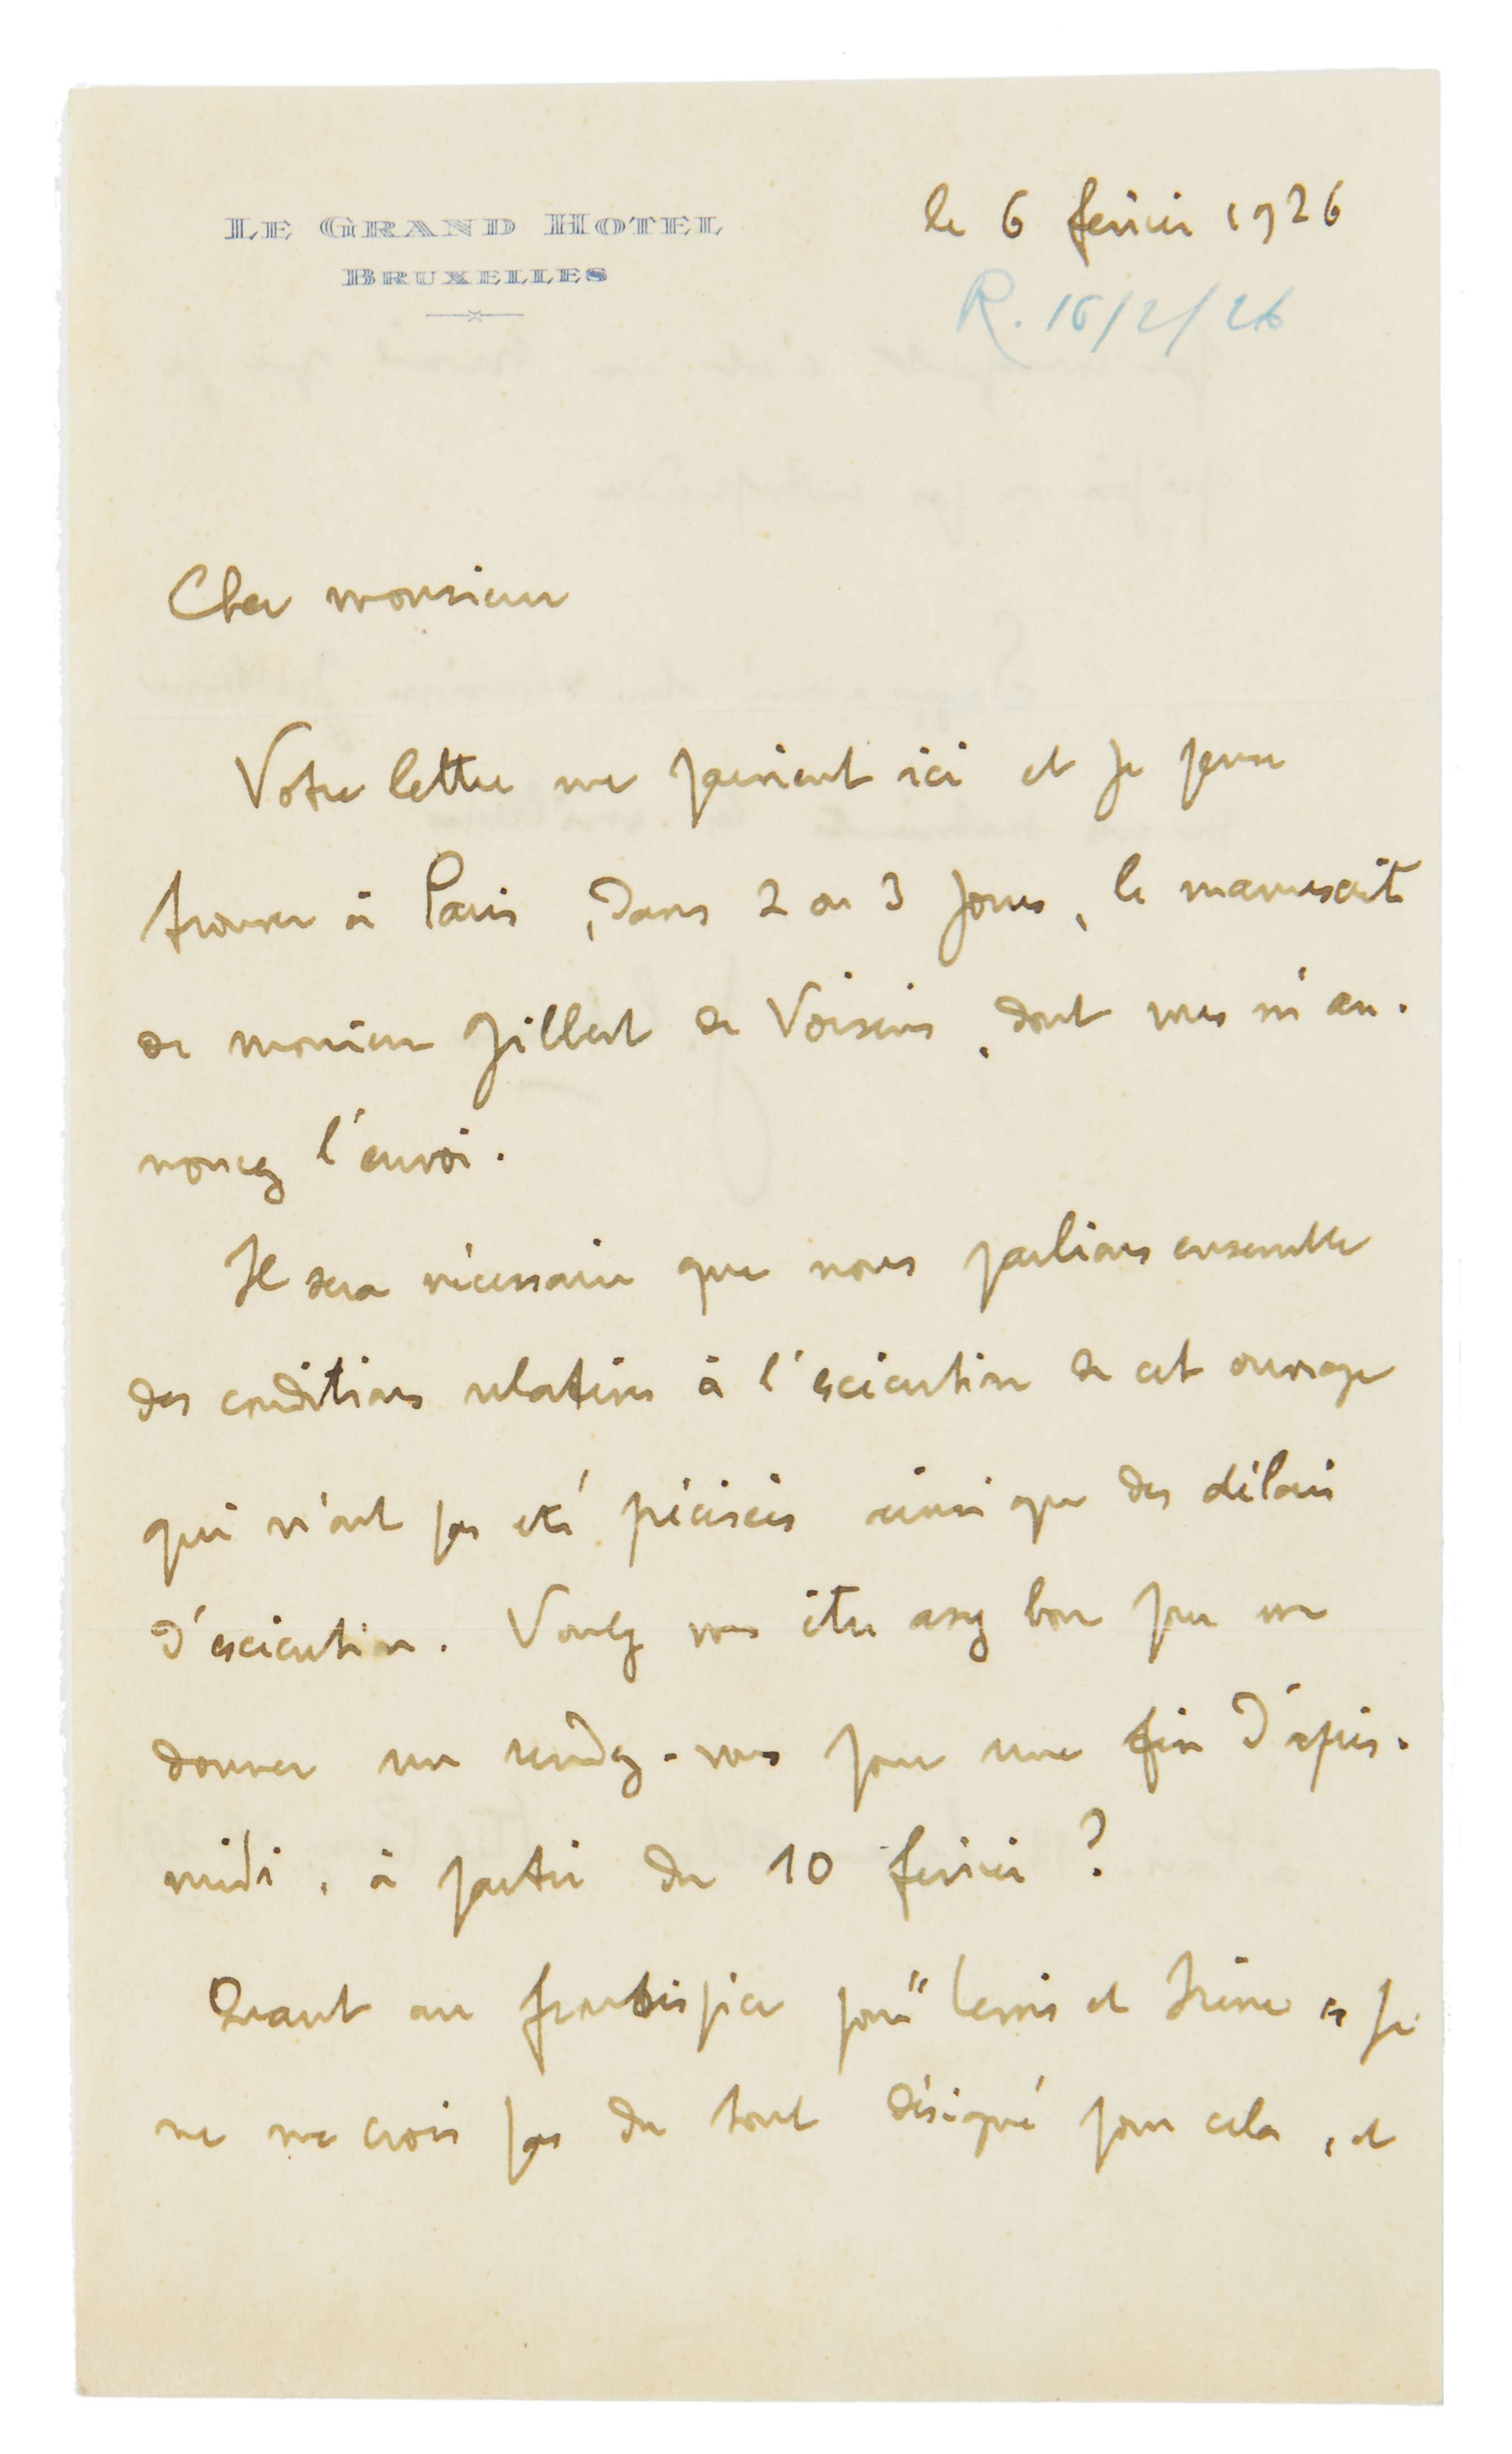 LE GRAND HOTEL
BRUXELLES
le 6 février 1926
R. 16/2/26
Cher monsieur
Votre lettre me parvient ici et je pense
trouver à Paris, dans 2 ou 3 jours, le manuscrit
de monsieur Gilbert de Voisins, dont vous m'an-
noncez l'envoi.
Il sera nécessaire que nous parlions ensemble
des conditions relatives à l'exécution de cet ouvrage
qui n'ont pas été précisées ainsi que des délais
d'exécution. Voulez vous être assez bon pour me
donner un rendez-vous pour une fin d'après-
midi, à partir du 10 février ?
Quant au frontispice pour "Lewis et Irène" je
ne me crois pas du tout désigné pour cela, et